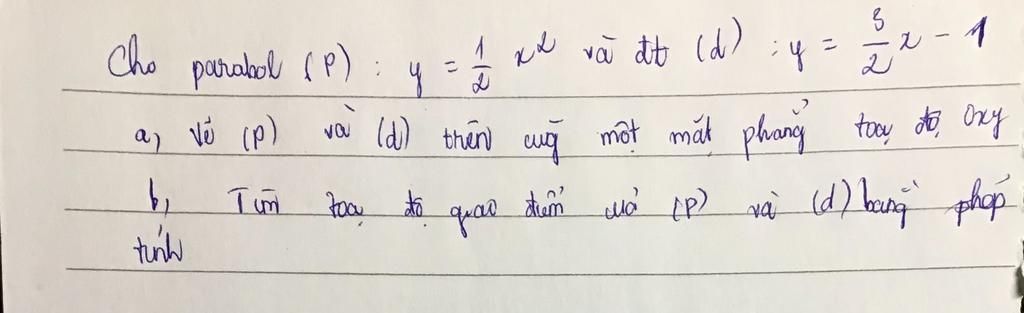 Cho parabol (P) : y = 1/2 x² và đt (d) : y = 3/2 x - 1
a, Vẽ (P) và (d) trên cùg một mặt phẳng toạ độ Oxy
b, Tìm toạ độ giao điểm củả (P) và (d) bằng phép
tính